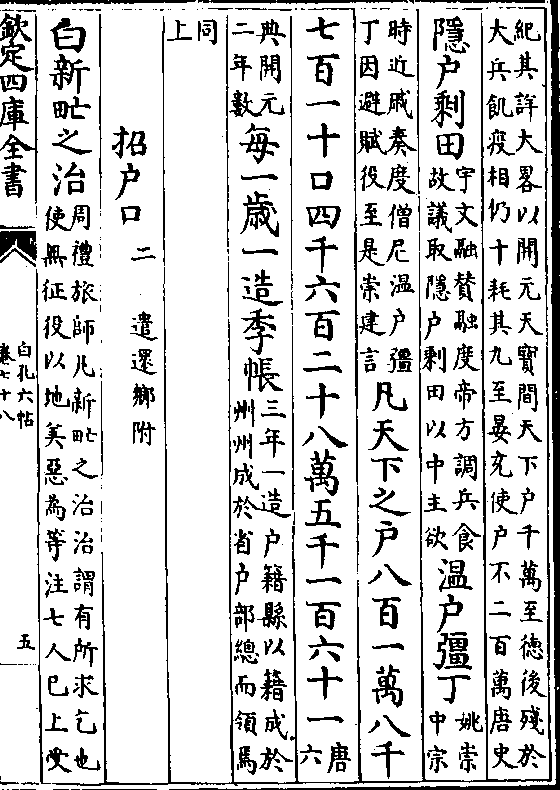 紀其詳大畧以開元天寶間天下戶千萬至德後殘於
大兵飢疫相仍十耗其九至晏充使戶不二百萬唐史
隱戶剩田
宇文融贊融度帝方調兵食
故議取隱戶剩田以中主欲
温戶彊丁
姚崇
中宗
時近戚奏度僧尼温戶彊
丁因避賦役至是崇建言
凡天下之戶八百一萬八千
七百一十口四千六百二十八萬五千一百六十一
唐
六
典開元
二年數
每一歳一造季帳
三年一造戶籍縣以籍成於
州州成於省戶部總而領焉
同
上
招戶口
二
遣還鄉附
白新甿之治
周禮旅師凡新甿之治治謂有所求乞也
使無征役以地美惡為等注七人已上受
欽定四庫全書
白孔六帖
卷七十八
五